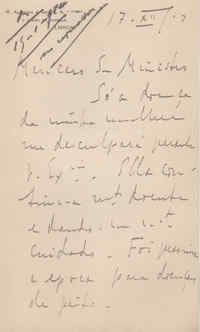 17-XII-
Meu caro Sr. Ministro
Só a doença
de minha mulher
me desculpará perante
V. Ex.cia. Ella con-
tinua mt. doente
e dando-me mto.
cuidado. Foi pessima
a epoca para doenças
de peito.